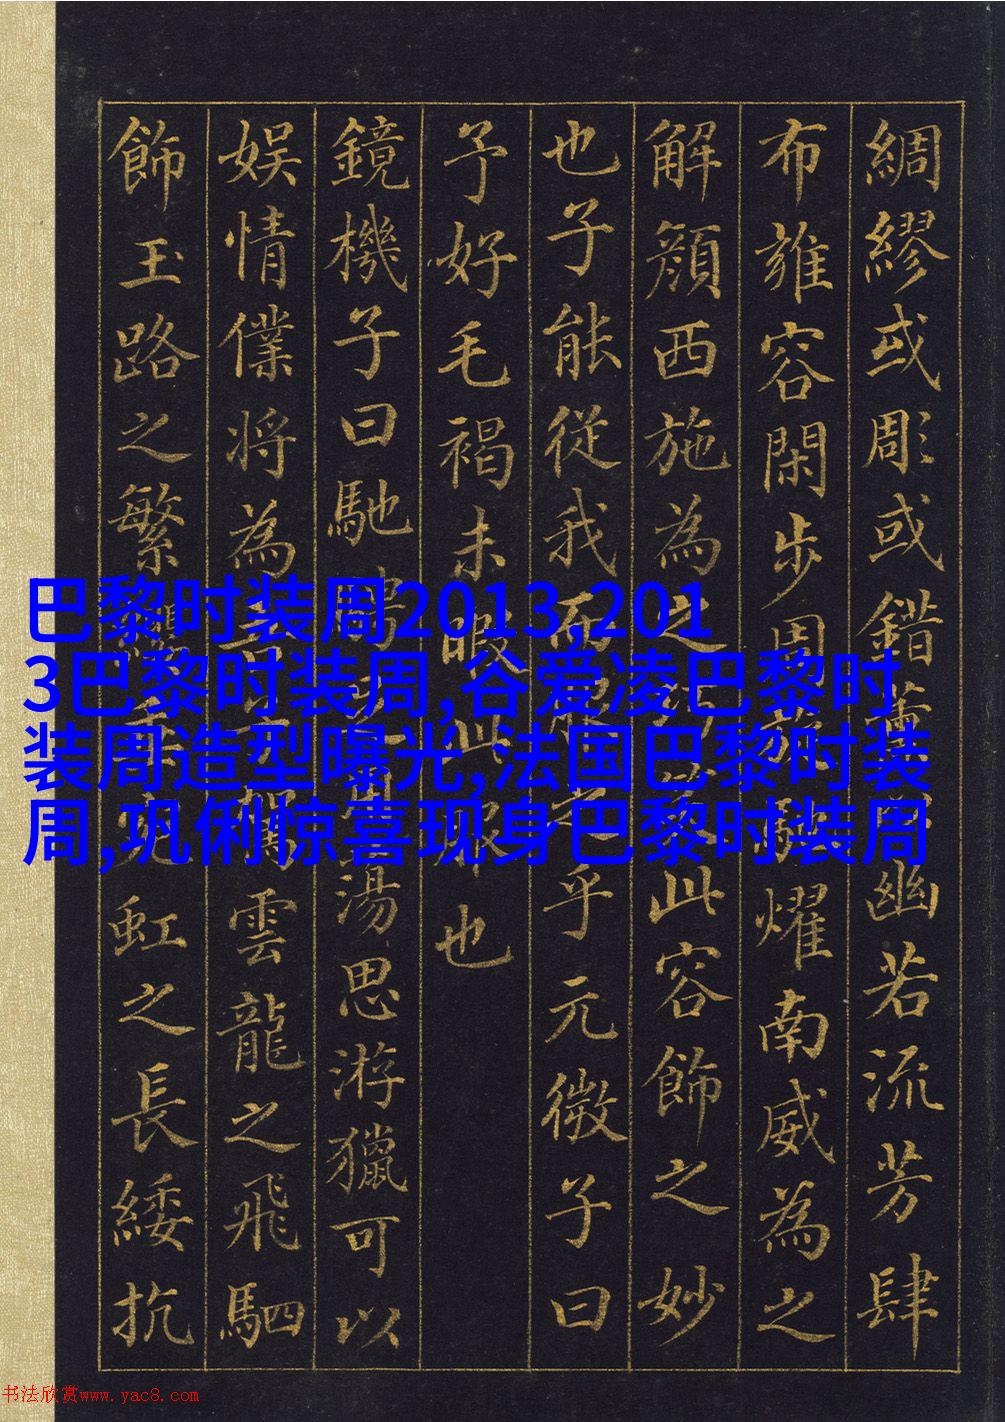 綢繆或彫或錯薰幽若流芳肆
布雍容閑步周旋馳耀南威為之
解顏西施為之巧笑此容飾之妙
也子能從我而服之乎元微子曰
予好毛褐未暇此服也
鏡機子曰馳騁蕩思游獵可以
娛情僕將為吾子駕雲龍之飛駟
飾玉路之繁纓垂宛虹之長綏抗
巴黎时装周2013,201
3巴黎时装周,谷爱凌巴黎时
装周造型曝光,法国巴黎时装
周,巩俐惊喜现身巴黎时装周
书法欣赏www.yac8.com